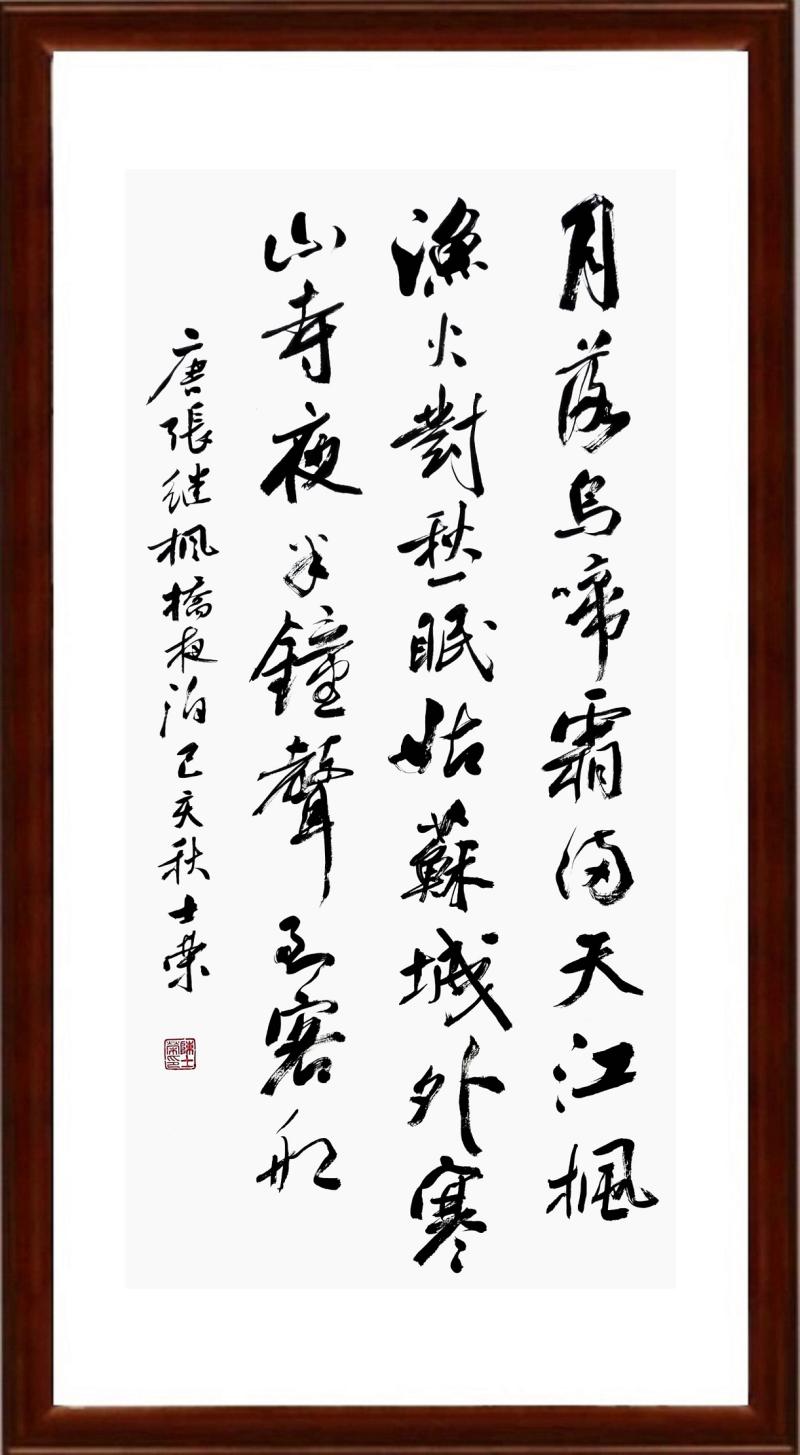 月落烏啼霜滿天江楓
漁火對愁眠姑蘇城外寒
山寺夜半鐘聲到客船
唐張继楓橋夜泊己亥秋士榮
陳士榮印